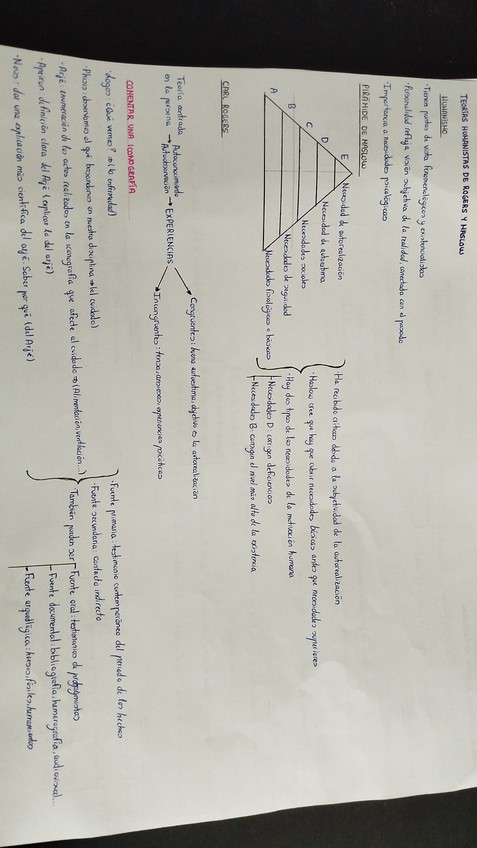 TEORÍAS HUMANISTAS DE ROGERS Y MASLOW
HUMANISMO
· Tienen puntos de vista fenomenológicos y existencialistas
· Personalidad refleja visión subjetiva de la realidad, conectada con el pasado
· Importancia a necesidades psicológicas
PIRÁMIDE DE MASLOW
E Necesidad de autorrealización
D Necesidad de autoestima
C Necesidades sociales
B Necesidades de seguridad
A Necesidades fisiológicas o básicas
· Ha recibido críticas debido a la subjetividad de la autorrealización
· Maslow cree que hay que cubrir necesidades básicas antes que necesidades superiores
· Hay dos tipos de las necesidades de la motivación humana
Necesidades D: corrigen deficiencias
Necesidades B: consiguen el nivel más alto de la existencia
CARL ROGERS
Teoría centrada en la persona → Autoconocimiento Autoobservación → EXPERIENCIAS
Congruentes: buena autoestima, objetivo es la autorrealización
Incongruentes: tensa, ansiosa, experiencias psicóticas
COMENTAR UNA ICONOGRAFÍA
· Logos: ¿Qué vemos? ⇒ (la enfermedad)
· Phisis: observamos al qué basándonos en nuestra disciplina ⇒ (el cuidado)
· Arjé: enumeración de los actos realizados en la iconografía que afecte al cuidado ⇒ (Alimentación, ventilación...)
· Apeiron: definición clara del Arjé (explicar lo del arjé)
· NoúS: dar una explicación más científica del arjé. Saber por qué (del Arjé)
· Fuente primaria: testimonio contemporáneo del periodo de los hechos
· Fuente secundaria: contacto indirecto
También pueden ser
Fuente oral: testimonios de protagonistas
Fuente documental: bibliografía, hemerografía, audiovisual...
Fuente arqueológica: huesos, fósiles, herramientas